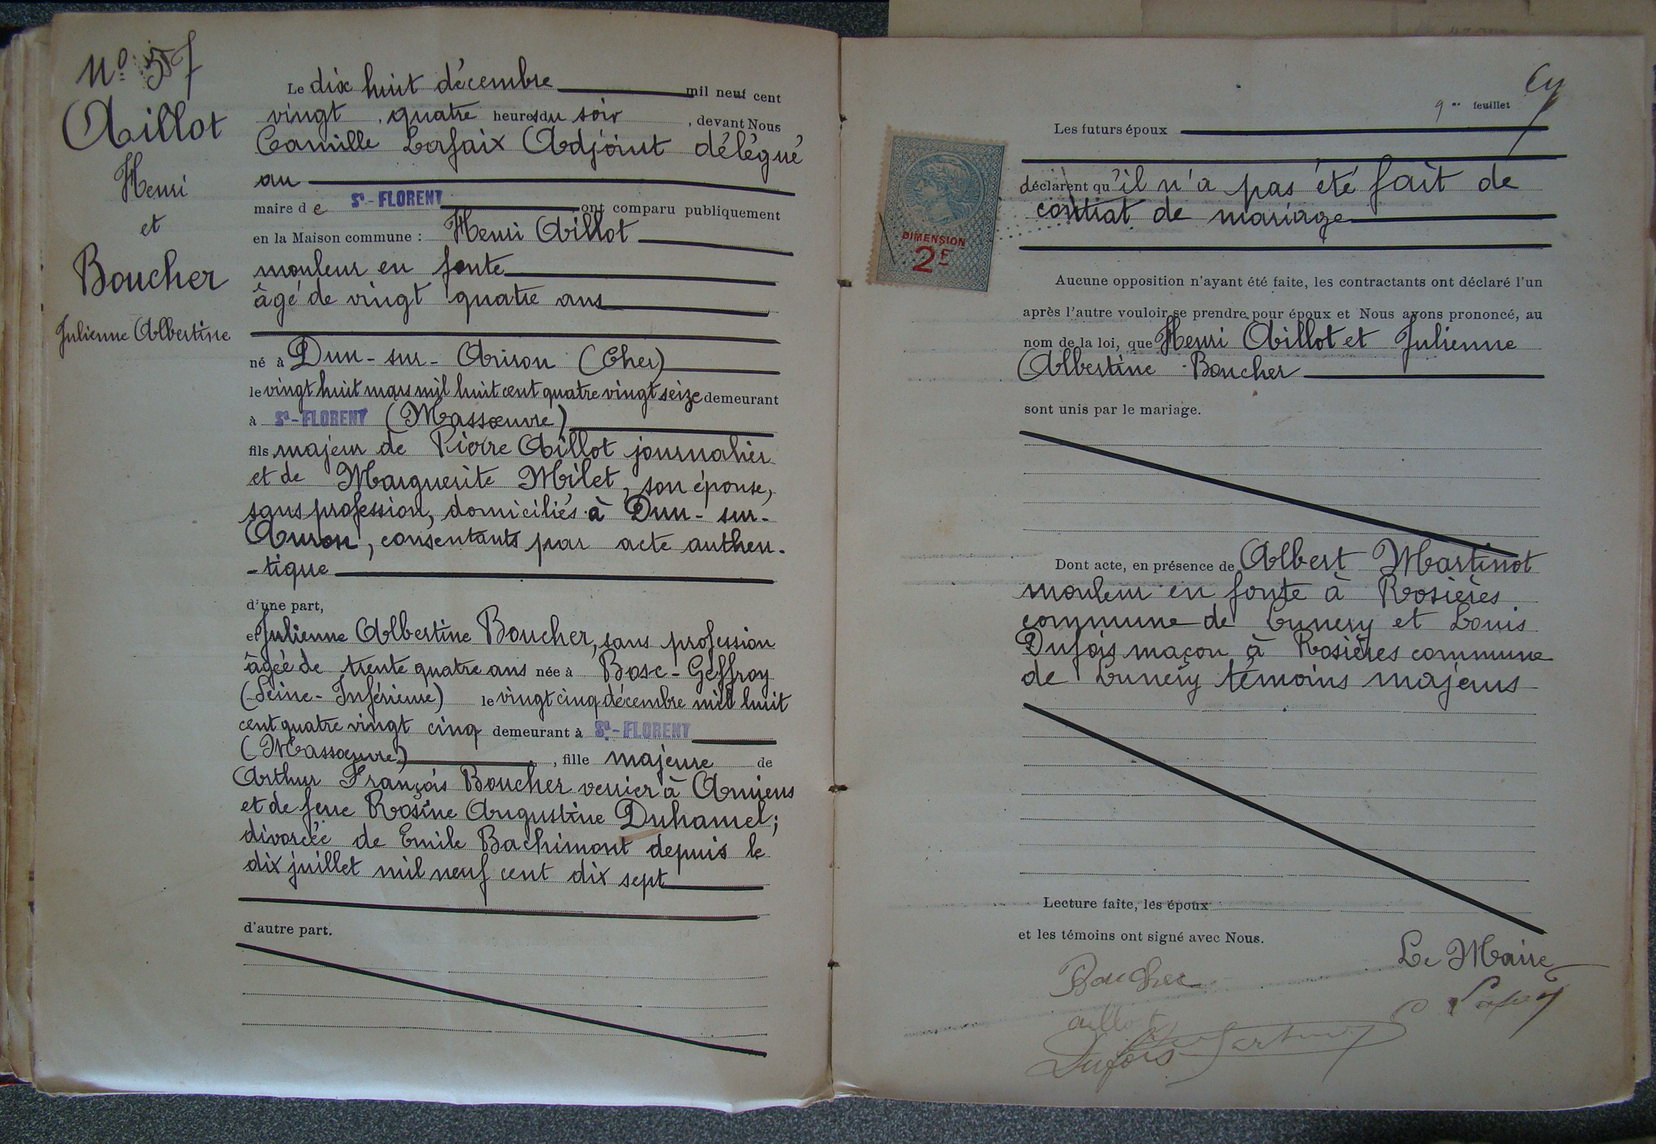 No 57
Aillot
Henri
et
Boucher
Julienne Albertine
Le dix huit décembre mil neuf cent
vingt, quatre heures du soir, devant Nous
Camille Lorfaix Adjoint délégué
au
maire de St-FLORENT ont comparu publiquement
en la Maison commune : Henri Aillot
mouleur en fonte
âgé de vingt quatre ans
né à Dun-sur-Auron (Cher)
le vingt huit mars mil huit cent quatre vingt seize demeurant
à St-FLORENT (Massœuvre)
fils majeur de Pierre Aillot journalier
et de Marguerite Milet, son épouse,
sans profession, domiciliés à Dun-sur-
Auron, consentants par acte authen-
-tique
d'une part,
et Julienne Albertine Boucher, sans profession
âgée de trente quatre ans née à Bosc-Geffroy
(Seine-Inférieure) le vingt cinq décembre mil huit
cent quatre vingt cinq demeurant à St-FLORENT
(Massœuvre), fille majeure de
Arthur François Boucher verrier à Amiens
et de feue Rosine Augustine Duhamel;
divorcée de Emile Bachimont depuis le
dix juillet mil neuf cent dix sept
d'autre part.
9me feuillet
Les futurs époux
déclarent qu'il n'a pas été fait de
contrat de mariage
DIMENSION
2F
Aucune opposition n'ayant été faite, les contractants ont déclaré l'un
après l'autre vouloir se prendre pour époux et Nous avons prononcé, au
nom de la loi, que Henri Aillot et Julienne
Albertine Boucher
sont unis par le mariage.
Dont acte, en présence de Albert Martinot
mouleur en fonte à Rosières
commune de Lunery et Louis
Dufois maçon à Rosières commune
de Lunery témoins majeurs
Lecture faite, les époux
et les témoins ont signé avec Nous.
Le Maire
Boucher
aillot
Dufois